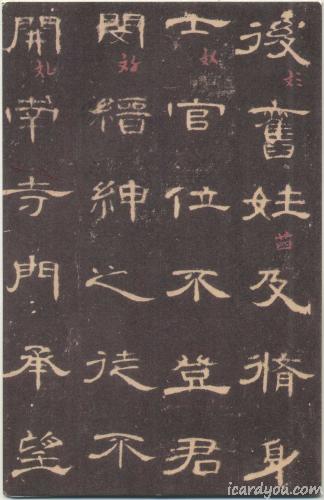 後舊姓及脩身
士官位不登君
閔縉紳之徒不
開南寺門承望
icardyou.com